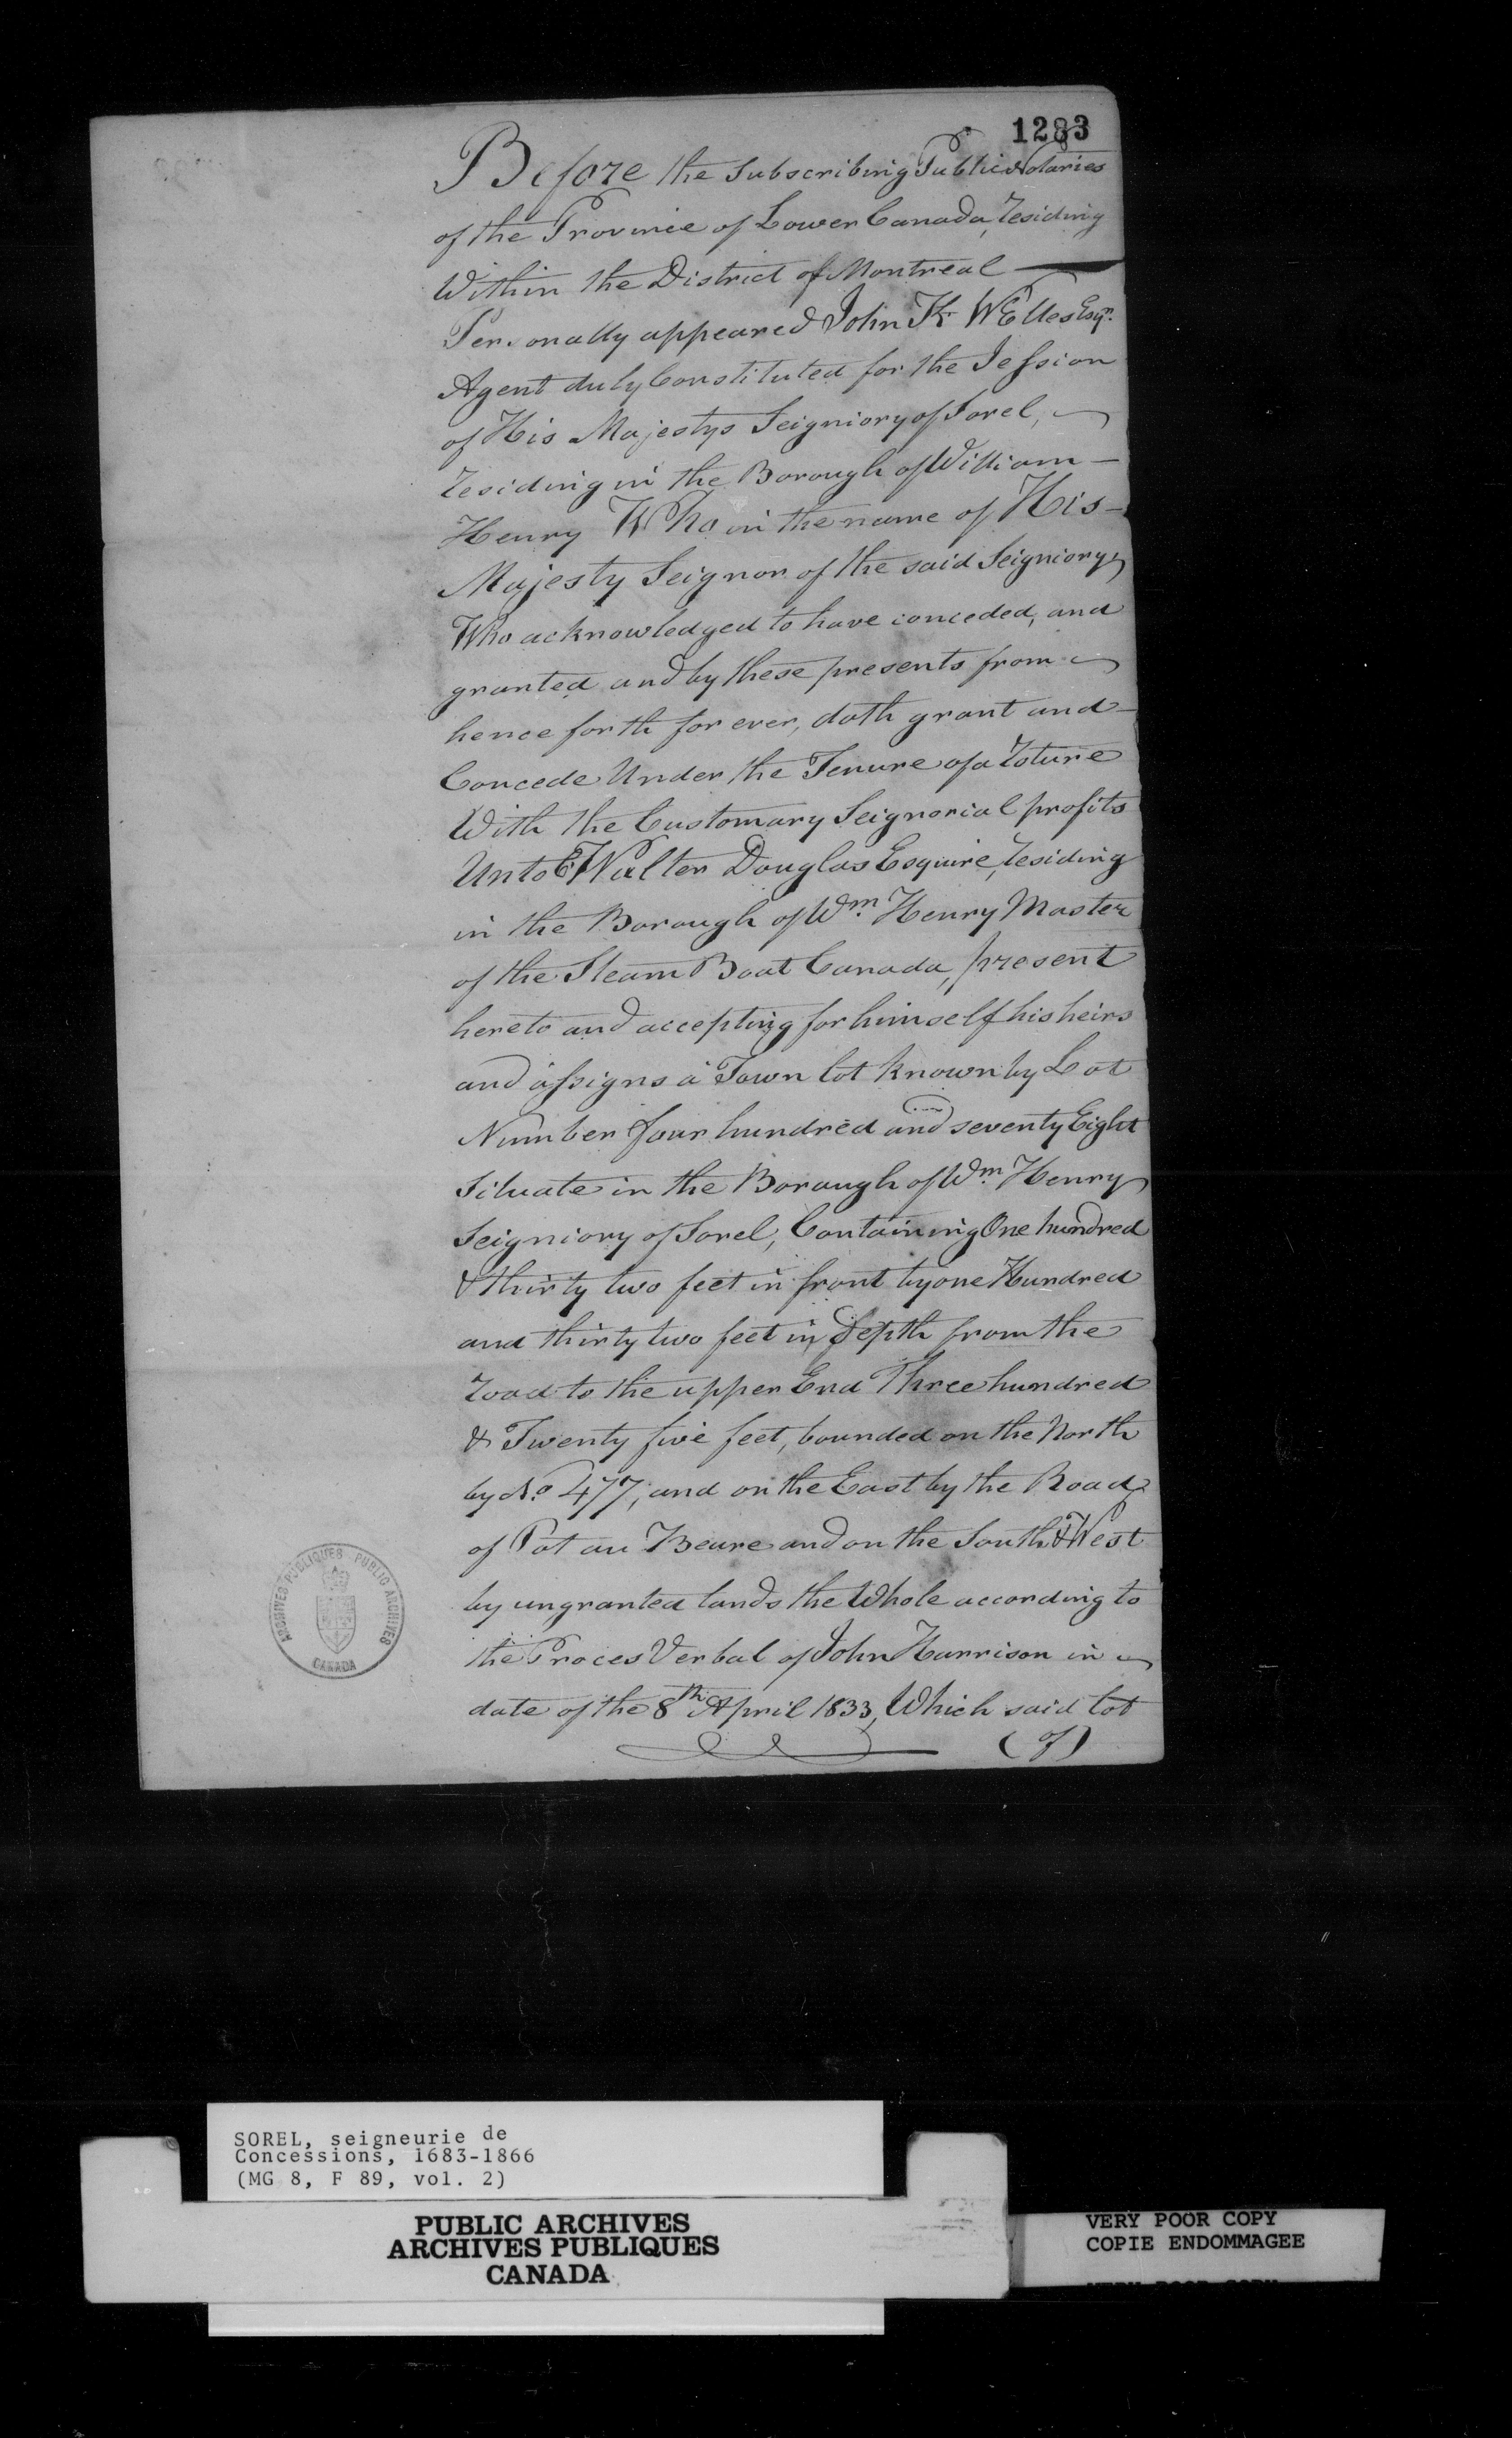 1283
Before the Subscribing Public Notaries
of the Province of Lower Canada, residing
Within the District of Montreal —
Personally appeared John K WElles Esqr.
Agent duly Constituted for the Session
of His Majestys Seigniory of Sorel,
residing in the Borough of William —
Henry Who in the name of His —
Majesty Seignor of the said Seigniory
Who acknowledged to have conceded, and
granted and by these presents from
hence forth for ever, doth grant and —
Concede Under the Tenure of a roture
With the Customary Seignorial profits
Unto Walter Douglas Esquire, residing
in the Borough of Wm. Henry Master
of the Steam Boat Canada, present
hereto and accepting for himself his heirs
and assigns a Town lot known by Lot
Number four hundred and seventy Eight
Situate in the Borough of Wm Henry
Seigniory of Sorel, Containing One hundred
& thirty two feet in front by one Hundred
and thirty two feet in depth from the
road to the upper End Three hundred
& Twenty five feet, bounded on the North
by No. 477, and on the East by the Road
of Pot au Beure and on the South & West
by ungranted lands the Whole according to
the Proces Verbal of John Harrison in
date of the 8th April 1833, Which said lot
(of)
ARCHIVES PUBLIQUES PUBLIC ARCHIVES
CANADA
SOREL, seigneurie de
Concessions, 1683-1866
(MG 8, F 89, vol. 2)
PUBLIC ARCHIVES
ARCHIVES PUBLIQUES
CANADA
VERY POOR COPY
COPIE ENDOMMAGEE
VERY POOR COPY